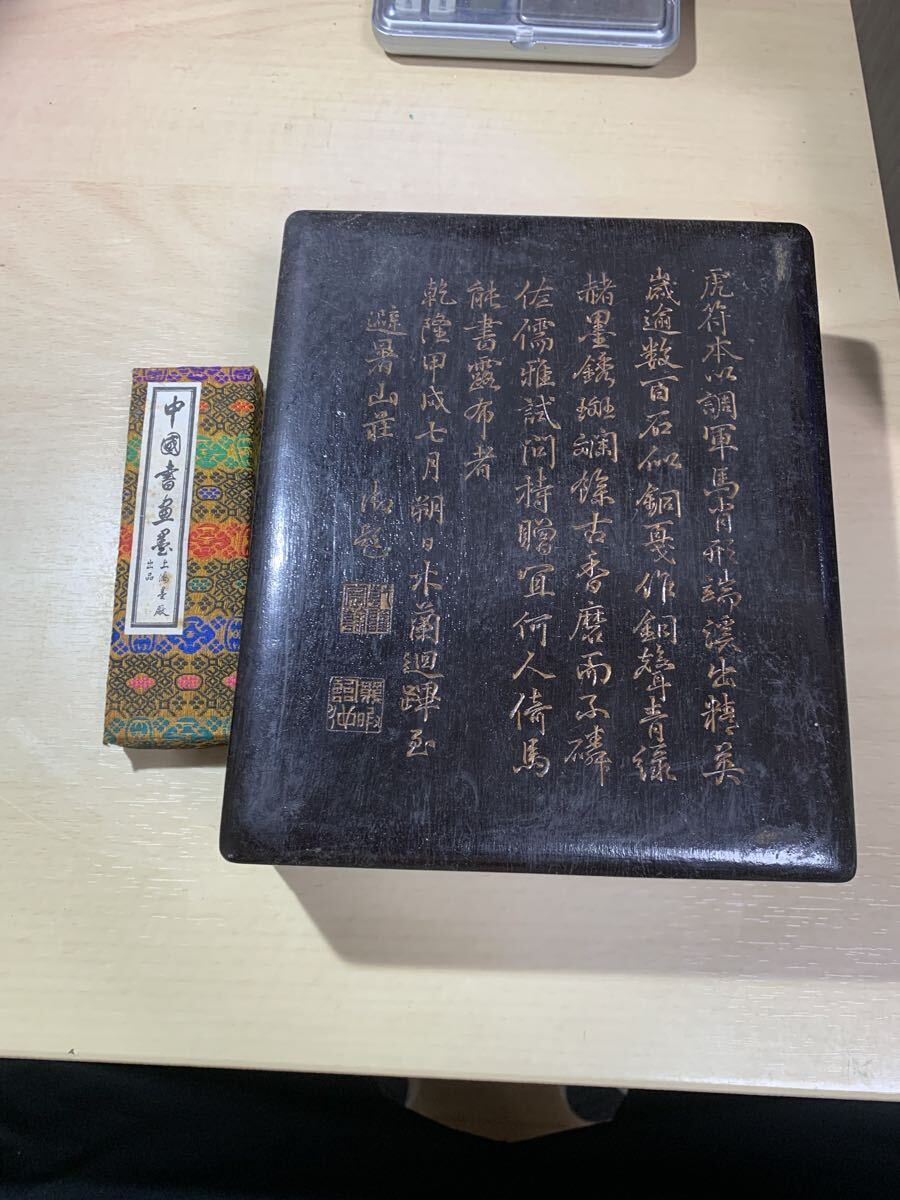 虎符本以調軍馬肖形端溪出精英
歲逾數百石似銅戛作銅聲青綠
赭墨鏽斑斕餘古香磨而不磷
佐儒雅試問持贈宜何人倚馬
能書露布者
乾隆甲戌七月朔日木蘭迴蹕至
避暑山莊 御題
中國書畫墨
上海墨厰
出品